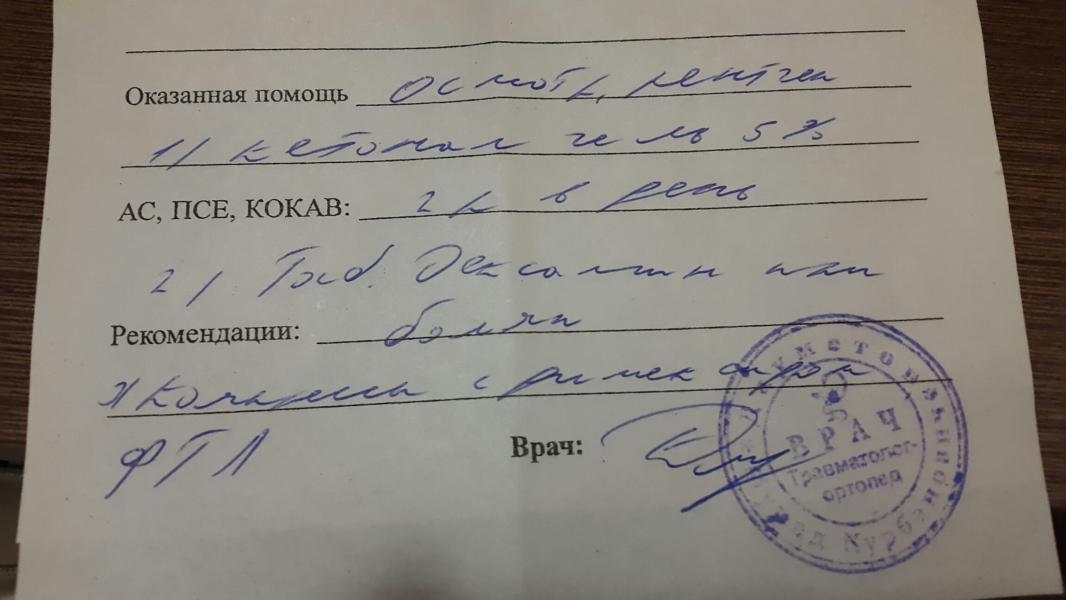 Оказанная помощь осмотр, рентген
1) кетонал гель 5%
АС, ПСЕ, КОКАВ: 2 р в день
2) Таб. Дексалгин при
Рекомендации: болях
3) Компрессы с
ФТЛ
Врач:
ВРАЧ
Травматолог-
ортопед